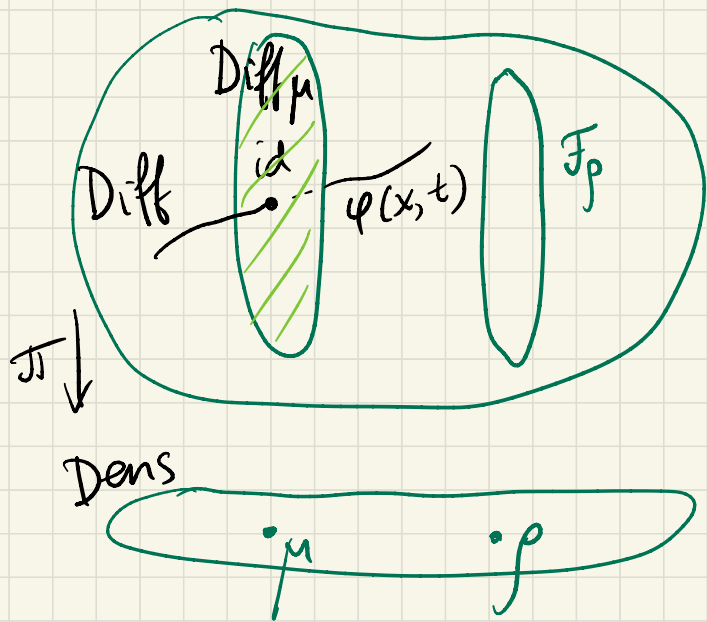 Diff_μ
id
F_ρ
Diff
φ(x, t)
π
Dens
μ
ρ